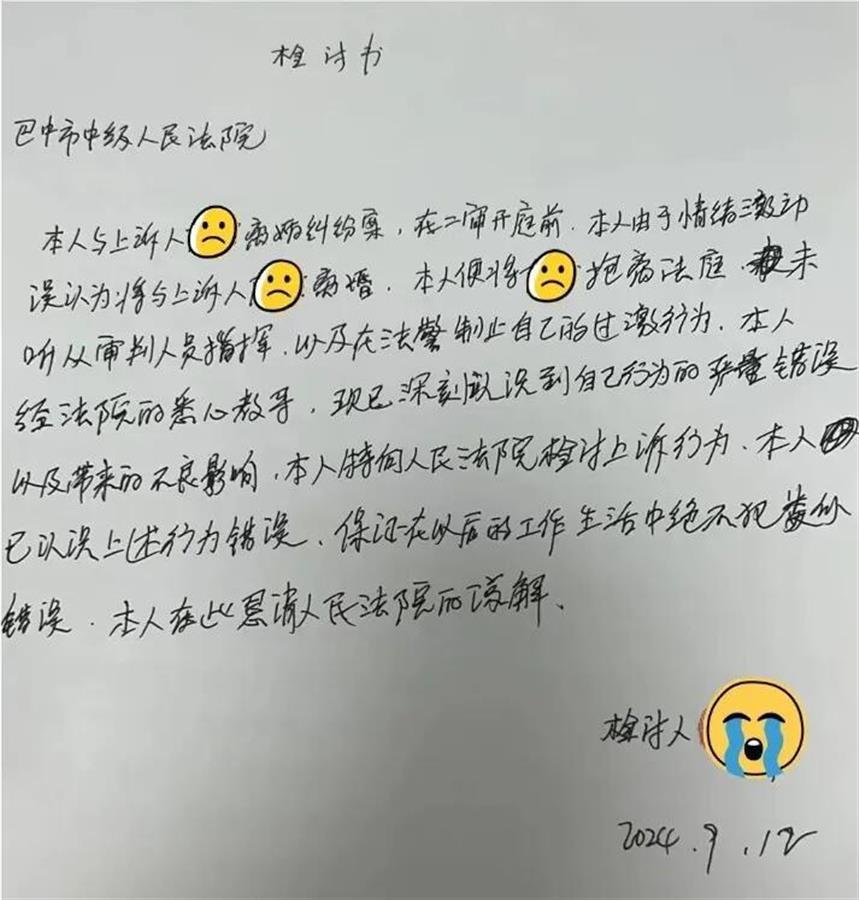 检讨书
巴中市中级人民法院
本人与上诉人离婚纠纷案，在二审开庭前.本人由于情绪激动
误认为将与上诉人离婚.本人便将抱离法庭.未
听从审判人员指挥.以及在法警制止自己的过激行为.本人
经法院的悉心教导，现已深刻认识到自己行为的严重错误
以及带来的不良影响，本人特向人民法院检讨上诉行为.本人
已认识上述行为错误、保证在以后的工作生活中绝不犯类似
错误.本人在此恳请人民法院的谅解、
检讨人
2024.9.12